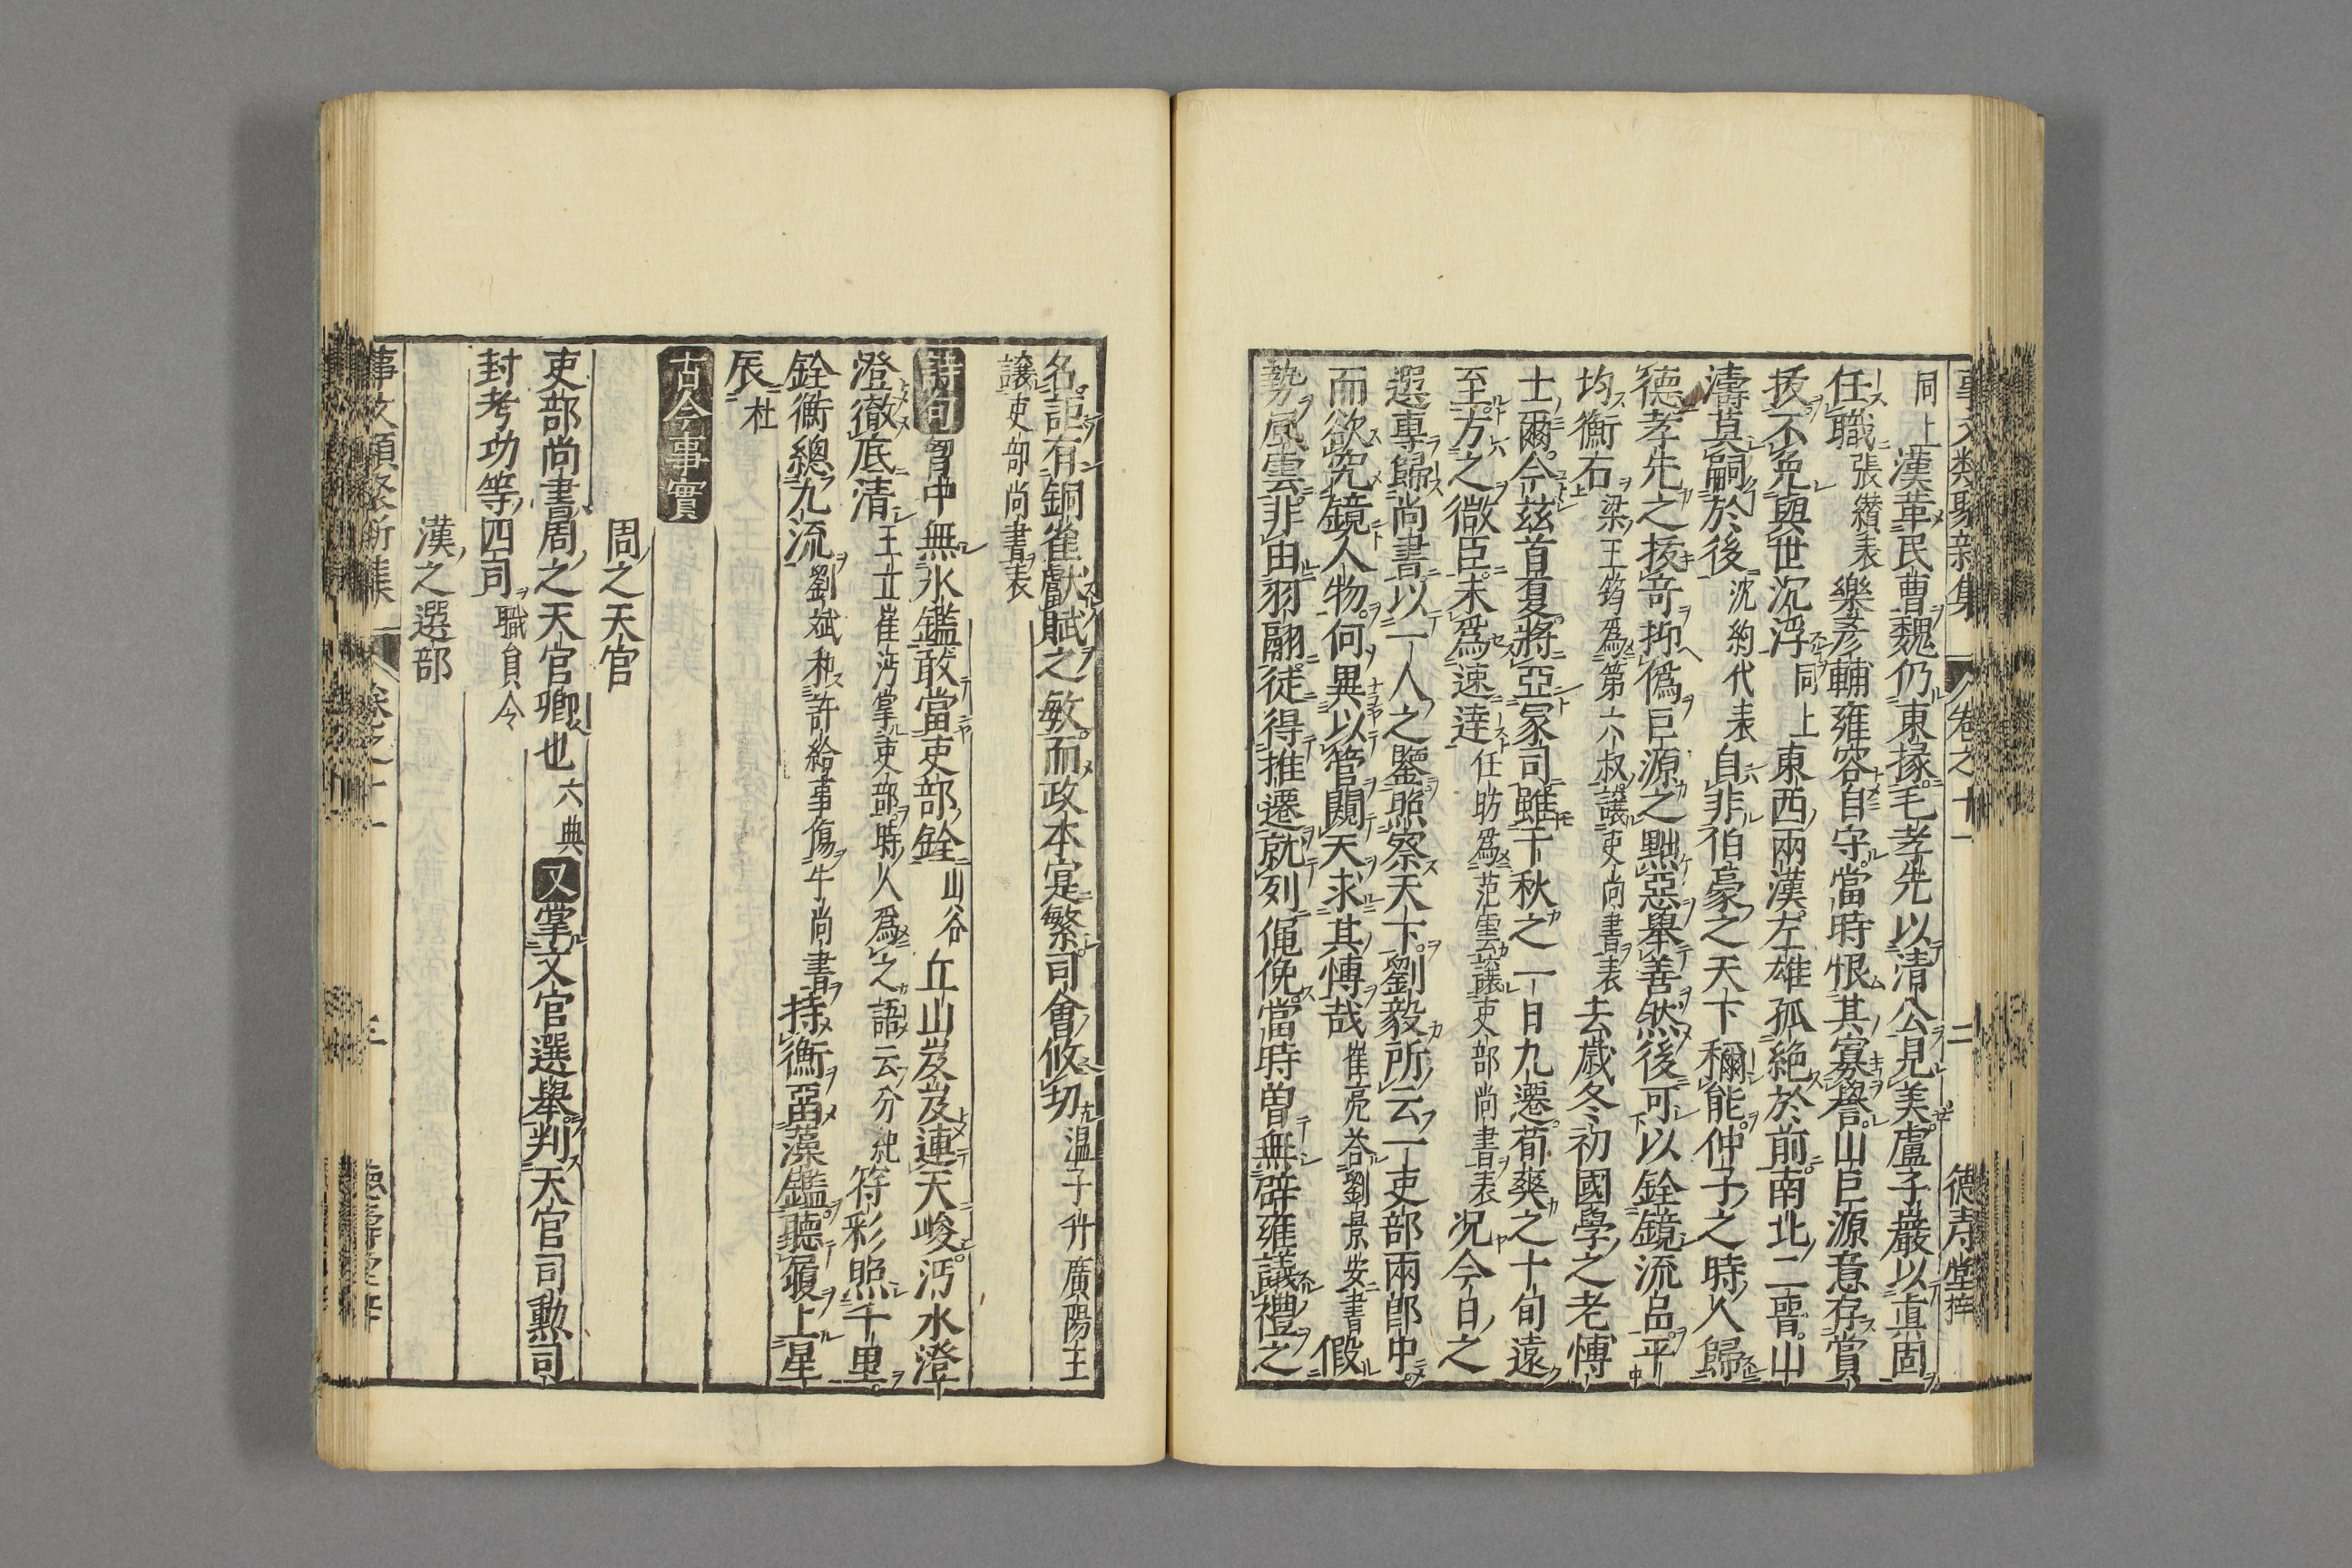 事文類聚新集 卷之十一 二 德壽堂梓
同上漢革民曹魏仍東掾毛孝先以清公見美盧子嚴以真固
任職張纘表樂彥輔雍容自守當時恨其寡譽山巨源意存賞
拔不免與世沉浮同上東西兩漢左雄孤絶於前南北二晉山
濤莫嗣於後沈約代表自非伯豪之天下稱能仲子之時人歸
德孝先之拔奇抑僞巨源之黜惡舉善然後可以銓鏡流品平
均衡石梁王筠爲第六叔讓吏尚書表去歲冬初國學之老愽
士爾今茲首夏將亞冢司雖千秋之一日九遷荀爽之十旬遠
至方之微臣未爲速達任昉爲范雲讓吏部尚書表况今日之
選專歸尚書以一人之鑒照察天下劉毅所云一吏部兩郎中
而欲究鏡人物何異以管闚天求其愽哉崔亮荅劉景安書假
勢風雲非由羽翮徒得推遷就列僶俛當時曽無辟雍議禮之
名詎有銅雀獻賦之敏而政本寔繁司會攸切温子升廣陽王
讓吏部尚書表
詩句胷中無水鑑敢當吏部銓山谷丘山岌岌連天峻沔水澄
澄徹底清王立崔沔掌吏部時人爲之語云分紕符彩照千里
銓衡總九流劉斌和許給事傷牛尚書持衡畱藻鑑聽履上星
辰杜
古今事實
周之天官
吏部尚書周之天官卿也六典又掌文官選舉判天官司勲司
封考功等四司職員令
漢之選部